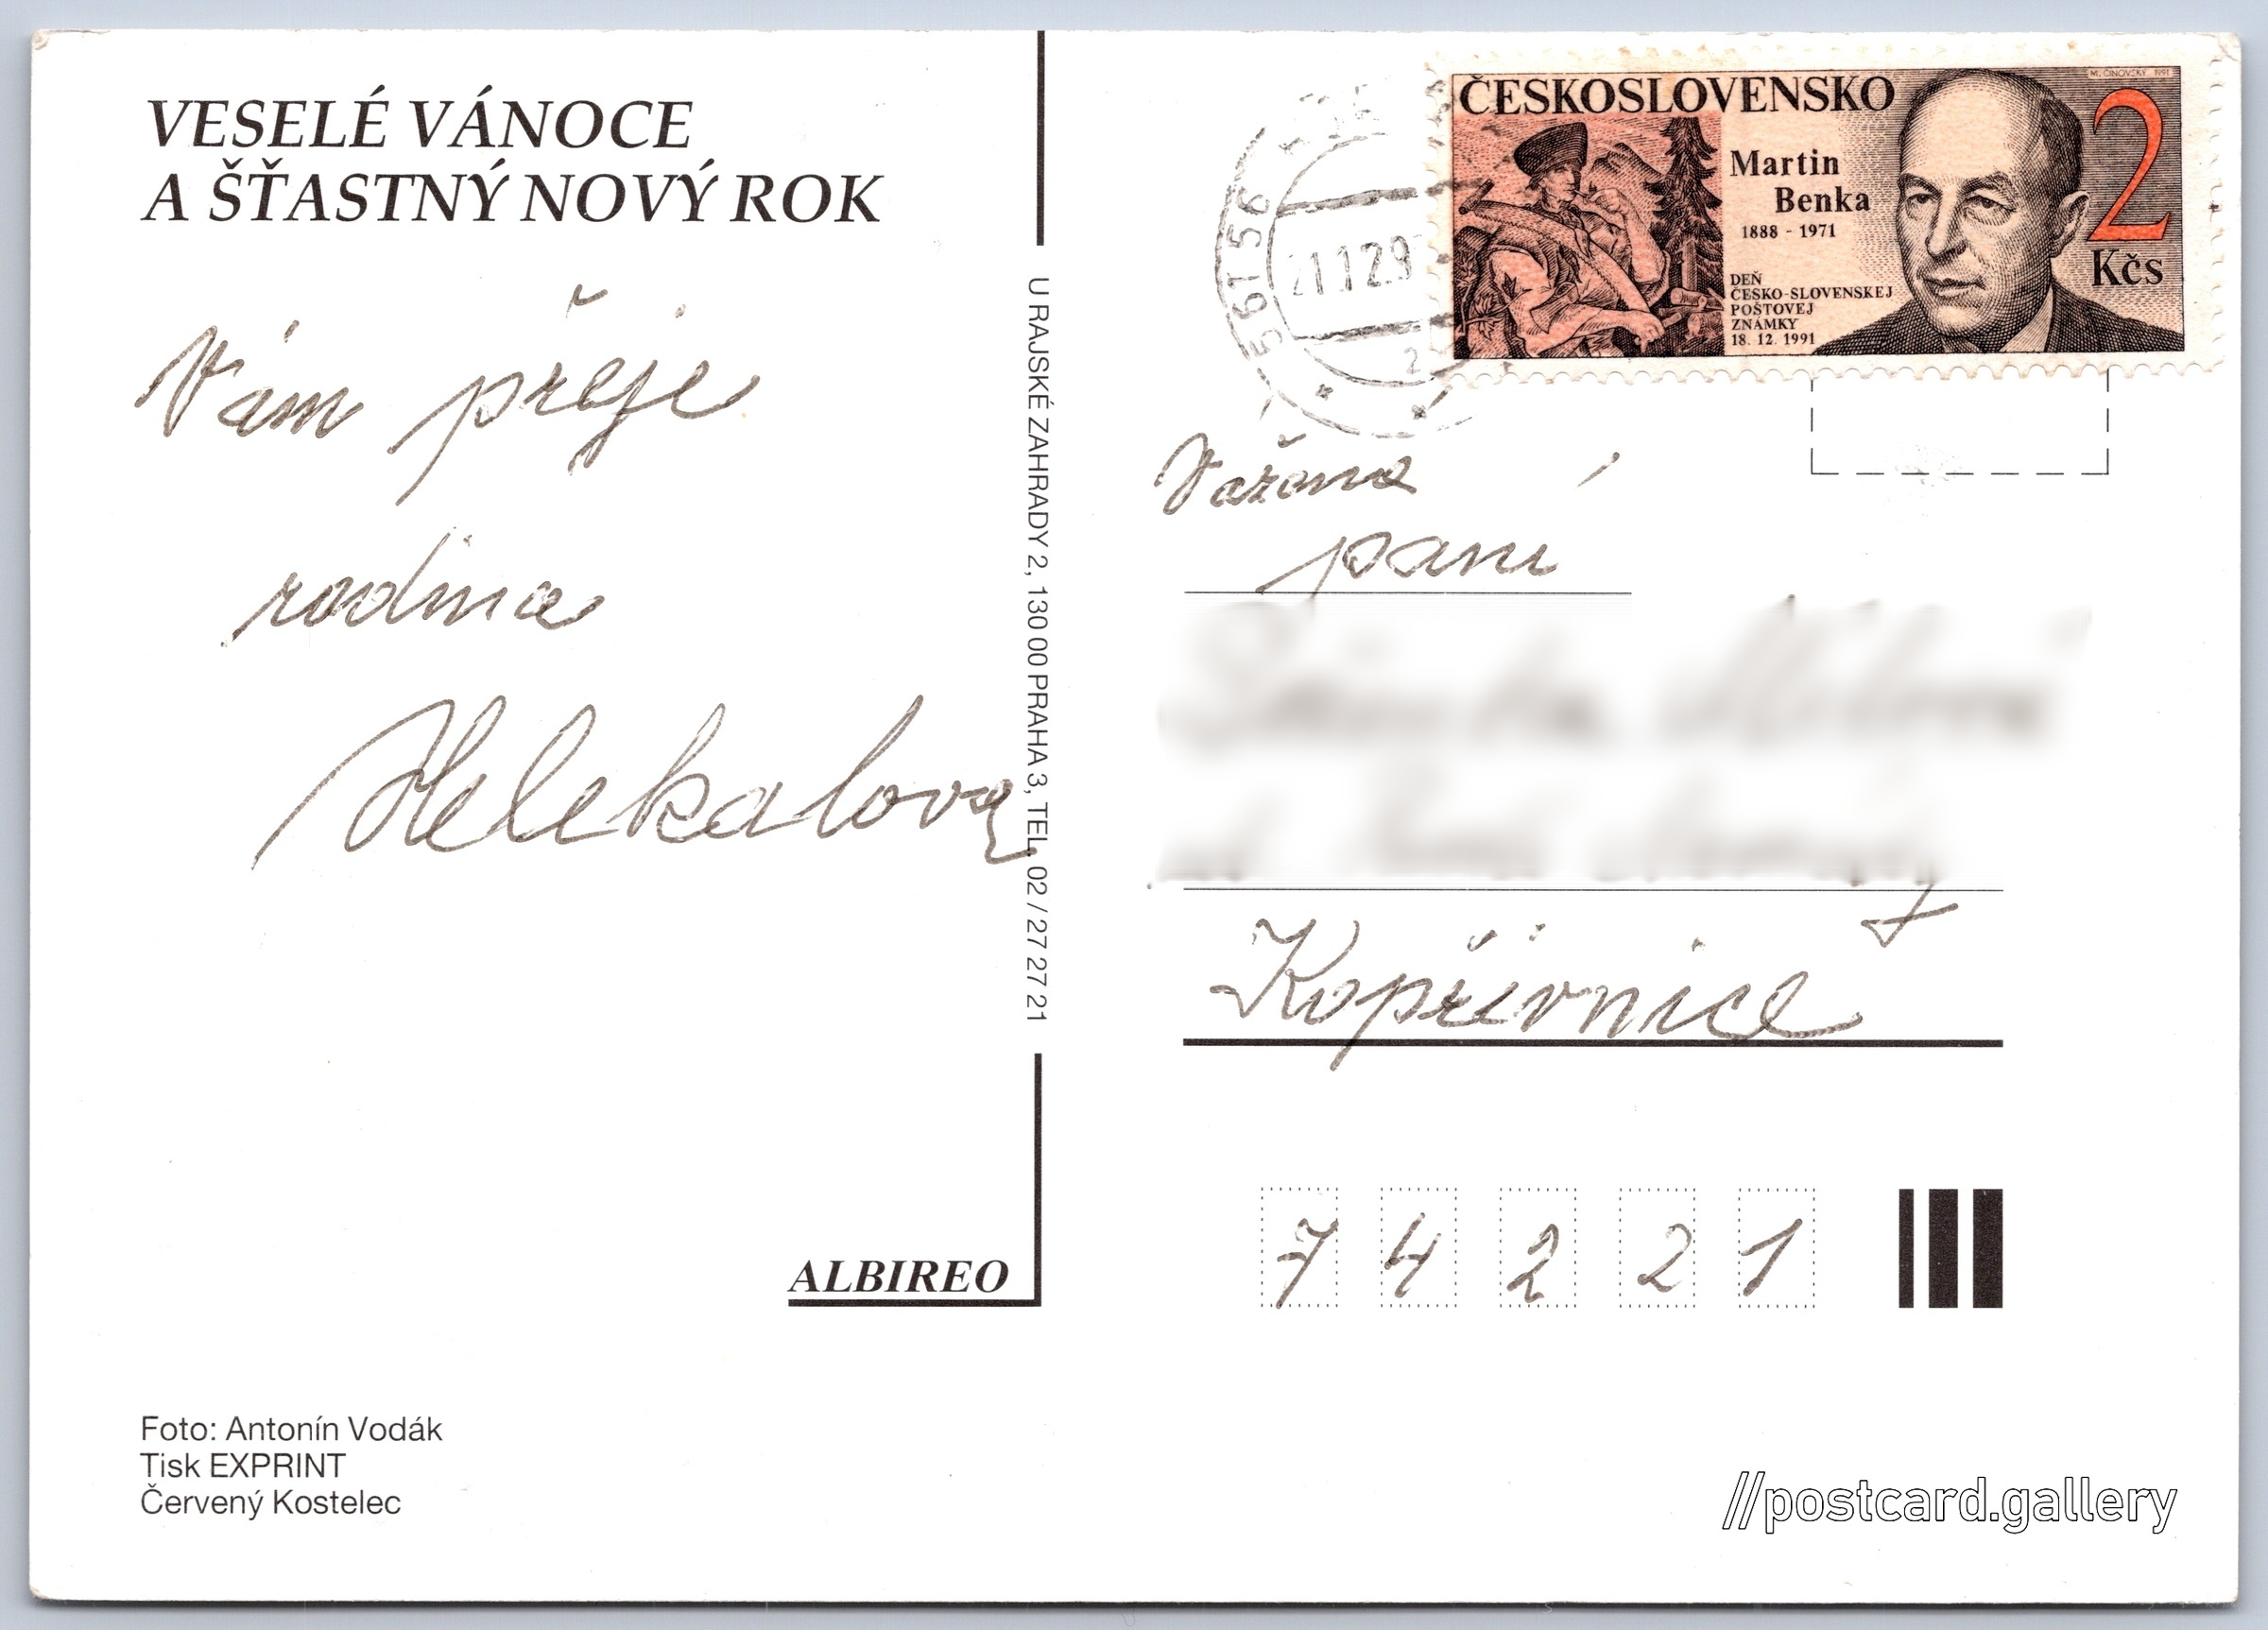 VESELÉ VÁNOCE
A ŠŤASTNÝ NOVÝ ROK
Vám přeje
rodina
Helekalova
ALBIREO
Foto: Antonín Vodák
Tisk EXPRINT
Červený Kostelec
U RAJSKÉ ZAHRADY 2, 130 00 PRAHA 3, TEL. 02 / 27 27 21
561 56
21.12.9
2
ČESKOSLOVENSKO
M. ČINOVSKÝ 1991
Martin
Benka
1888 - 1971
DEŇ
ČESKO-SLOVENSKEJ
POŠTOVEJ
ZNÁMKY
18. 12. 1991
2
Kčs
Vážená
paní
Kopřivnice
7 4 2 2 1
//postcard.gallery